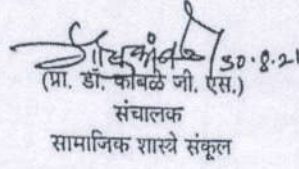 30.8.21
(प्रा. डॉ. कांबळे जी. एस.)
संचालक
सामाजिक शास्त्रे संकूल